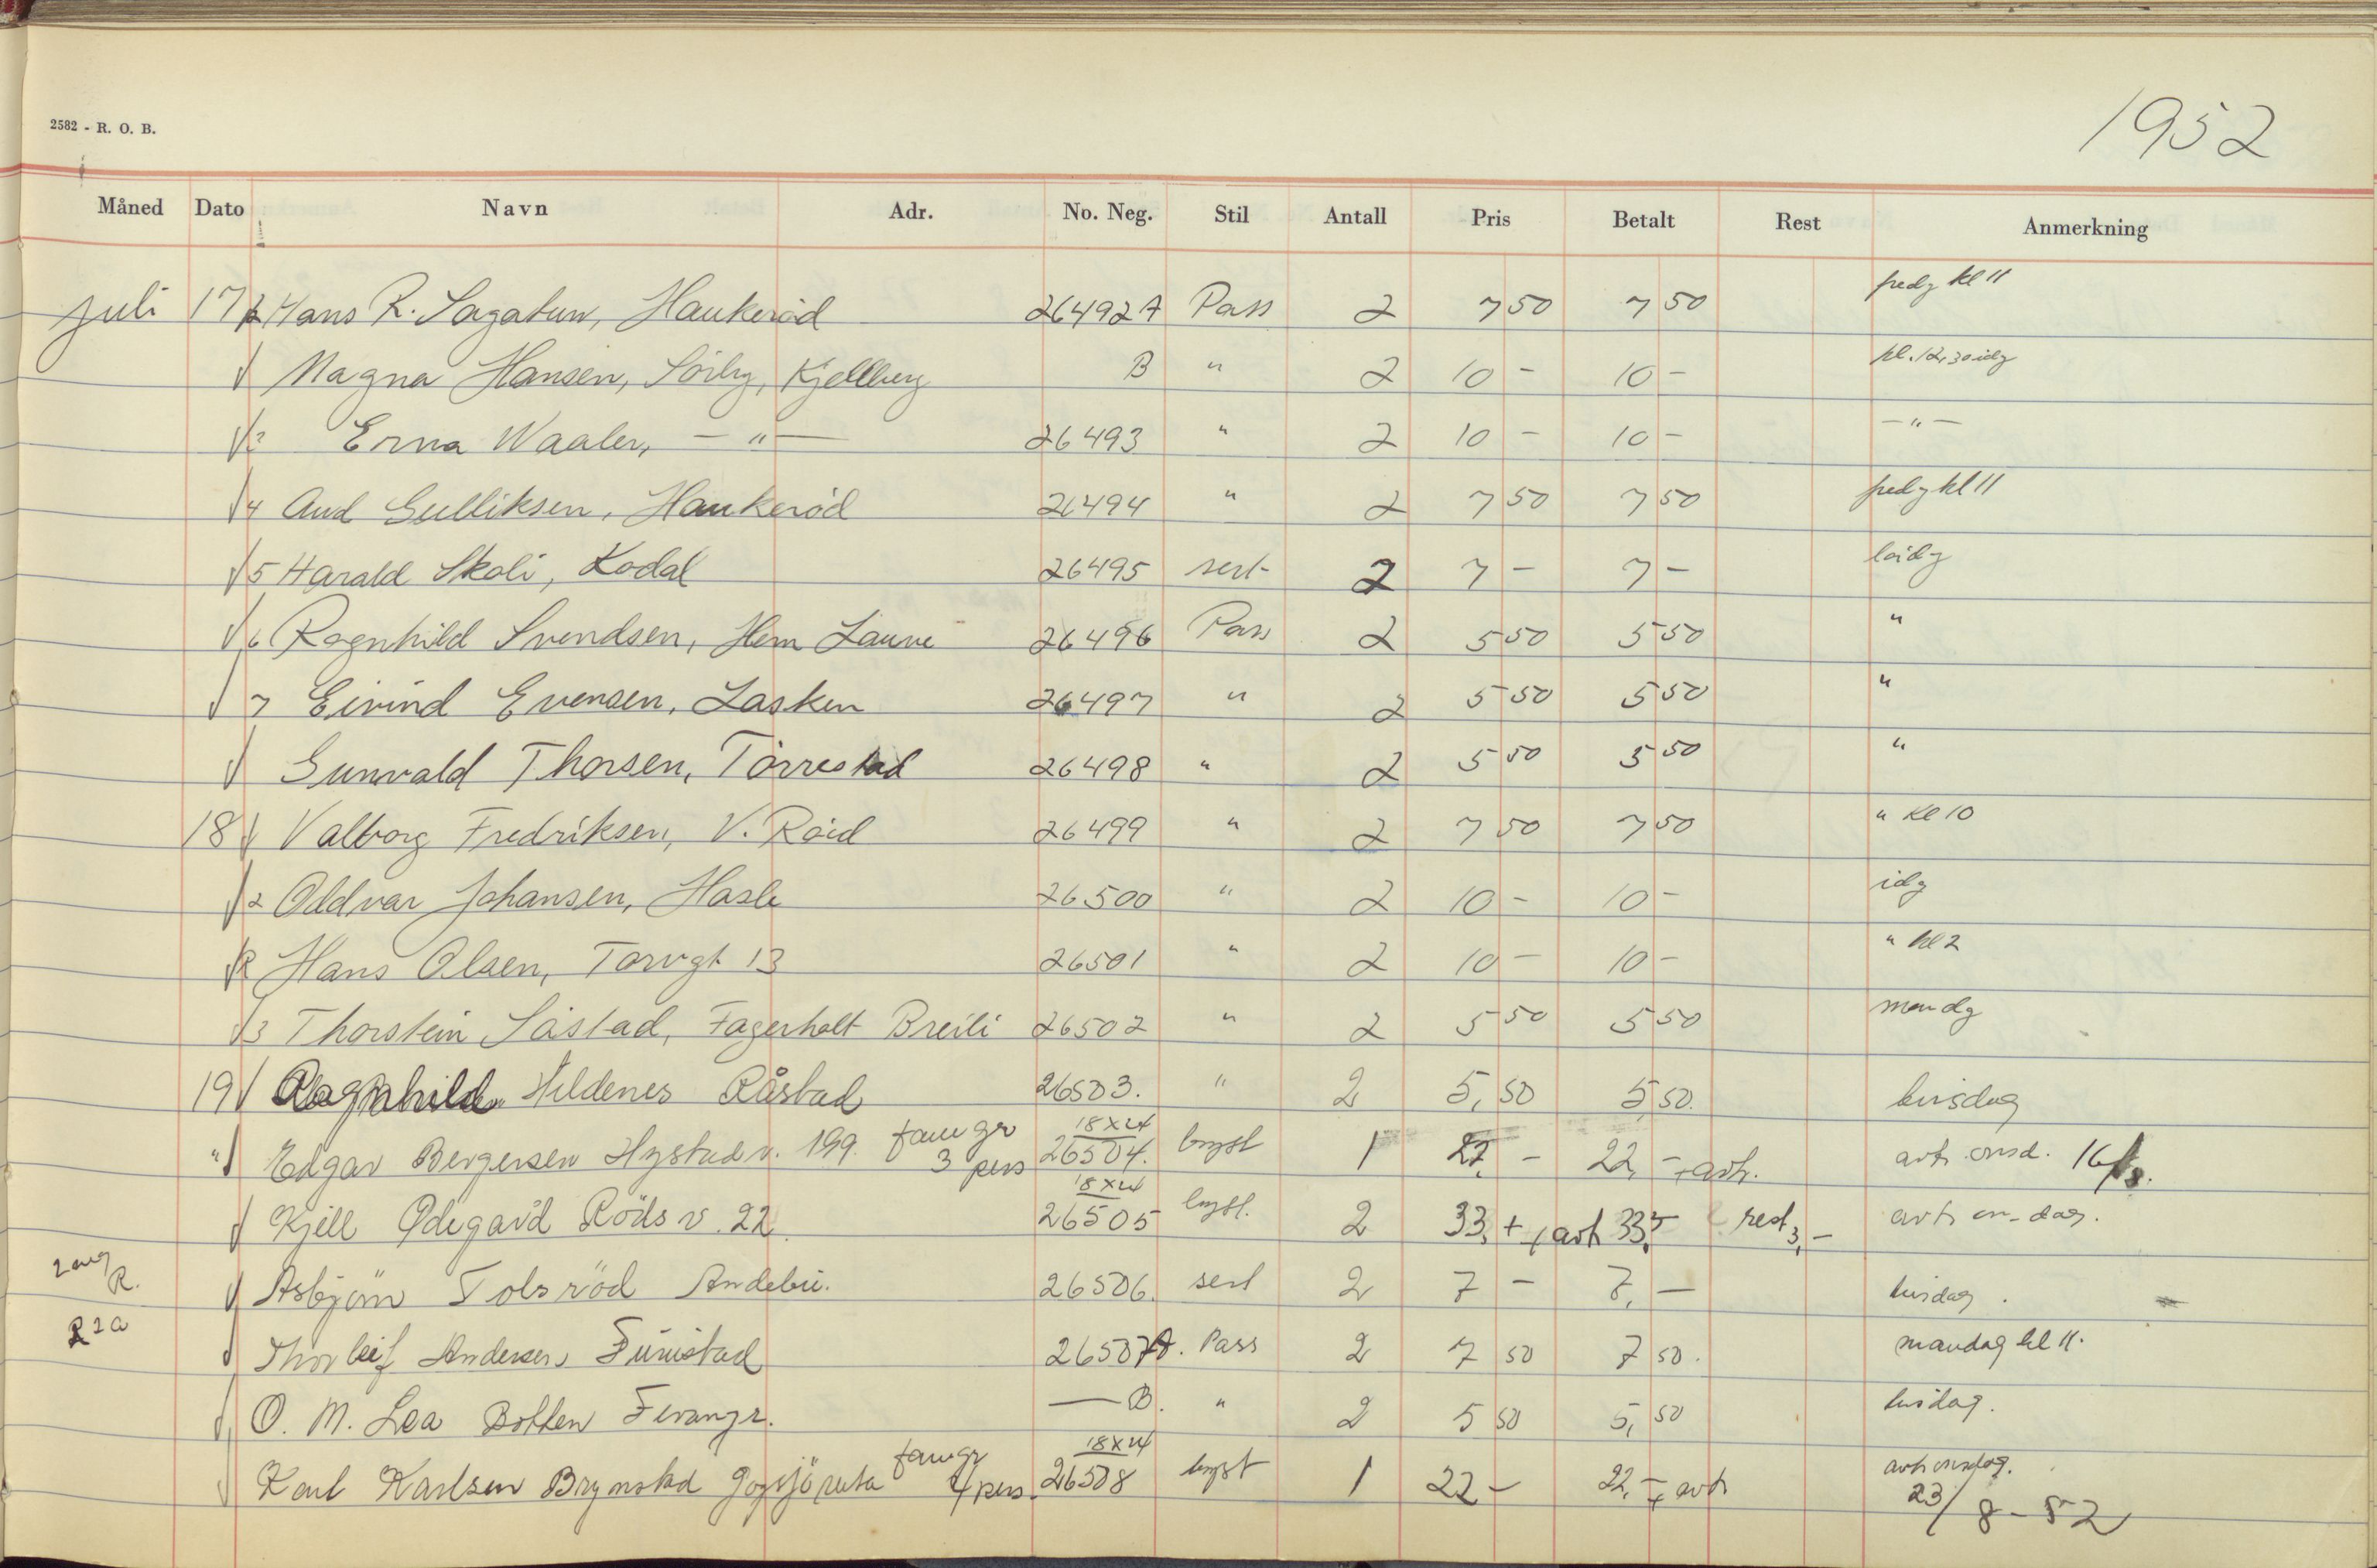 2582 - R. O. B.
1952
Måned Dato Navn Adr. No. Neg. Stil Antall Pris Betalt Rest Anmerkning
juli 17 Hans R. Sagatun, Haukeröd 26492 A Pass 2 7 50 7 50 fredg kl 11
Magna Hansen, Sörby, Kjellberg B " 2 10 - 10 - kl. 12,30 idg
Erna Waaler, — " — 26493 " 2 10 - 10 - — " —
4 Aud Gulliksen, Haukeröd 26494 " 2 7 50 7 50 fredg kl 11
5 Harald Skoli, Kodal 26495 sert- 2 7 - 7 - lördg
6 Ragnhild Svendsen, Hem Lauve 26496 Pass 2 5 50 5 50 "
7 Eivind Evensen, Lasken 26497 " 2 5 50 5 50 "
Gunvald Thorsen, Törrestad 26498 " 2 5 50 5 50 "
18 Valborg Fredriksen, V. Röid 26499 " 2 7 50 7 50 " kl 10
2 Oddvar Johansen, Hasle 26500 " 2 10 - 10 - idg
R Hans Olsen, Torvgt 13 26501 " 2 10 - 10 - " kl 2
3 Thorstein Såstad, Fagerholt Breili 26502 " 2 5 50 5 50 mandg
19 Ragnhild Hildenes Råstad 26503. " 2 5,50 5,50. tirsdag
" Edgar Bergersen Hystadv. 199. fam gr 3 pers 18x24 26504. bryst 1 22, - 22, - + avt. avt. onsd. 16/8.
Kjell Ödegård Röds v. 22. 18x24 26505 bryst. 2 33, + + avt 33,- rest 3,- avt. on-dag.
2 aug R. Asbjörn Tolsröd Andebu. 26506. sert 2 7 - 7, - tirsdag.
R 2a Thorleif Andersen Furustad 26507 A. Pass 2 7 50 7 50. mandag kl 11.
O. M. Lea Botten Fevangr. — B. " 2 5 50 5,50 tirsdag.
Karl Karlsen Brynstad fam gr 4 pers. 18x24 26508 bryst 1 22 - 22,- + avt avt. onsdag.
23/8-52